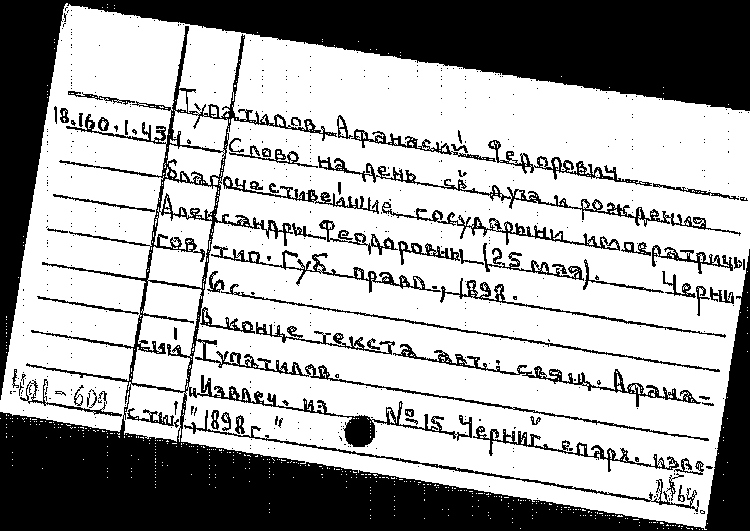 Тупатилов, Афанасий Федорович
18.160.1.434. Слово на день св. духа и рождения
благочестивейшие государыни императрицы
Александры Феодоровны (25 мая). Черни-
гов, тип. Губ. правл., 1898.
6 с.
В конце текста авт.: свящ. Афана-
сий Тупатилов.
"Извлеч. из №15 "Черниг. епарх. изве-
стий", 1898 г."
401-609